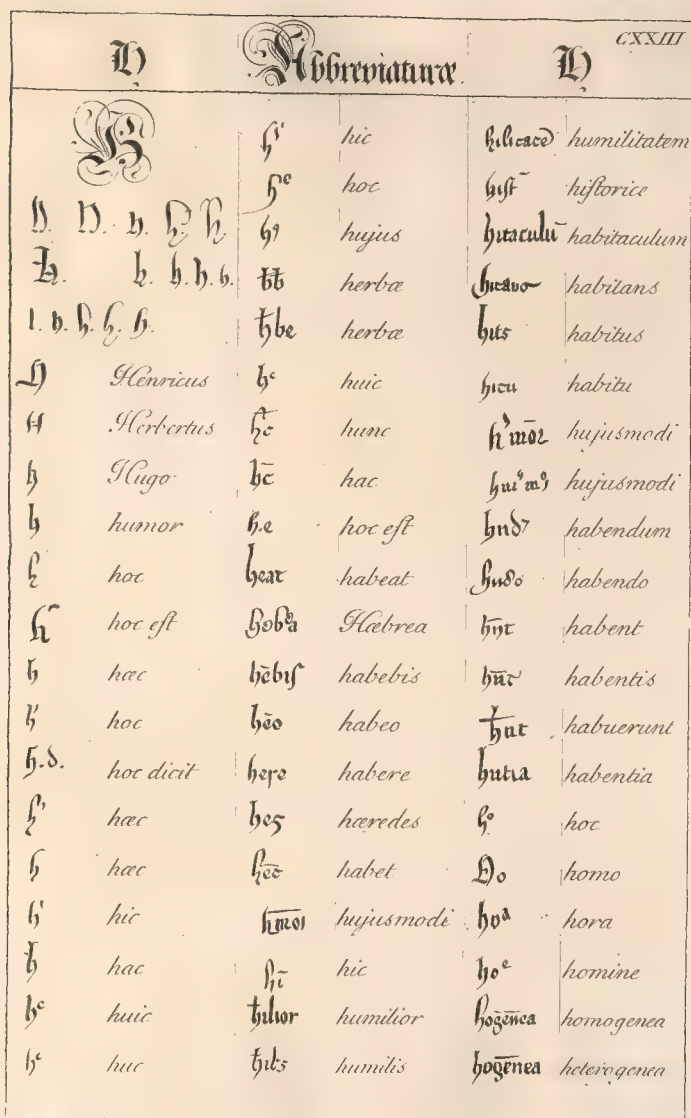 CXXIII
H Abbreviaturæ H
H
H. H. h. h. h.
H. h. h. h. h.
h. h. h. h.
H Henricus
H Herbertus
h Hugo
h humor
h hoc
h hoc eſt
h hæc
h' hoc
h.d. hoc dicit
h' hæc
h hæc
h' hic
ħ hac
hᶜ huic
hᶜ huc
hⁱ hic
hᵒ hoc
hꝰ hujus
ħb herbæ
ħbe herbæ
hᶜ huic
hc̄ hunc
hc̄ hac
h.e hoc eſt
heat habeat
Hæbrea
hēbiſ habebis
hēo habeo
here habere
heꝫ hæredes
hēt habet
hmoi hujusmodi
hī hic
ħilior humilior
ħil's humilis
hilitatē humilitatem
hiſt̄ hiſtorice
hitaculū habitaculum
habitans
hits habitus
hitu habitu
hujusmodi
hujusmodi
habendum
hndo habendo
hn̄t habent
habentis
ħnt habuerunt
hntia habentia
hᵒ hoc
Ho homo
hoᵃ hora
hoᵉ homine
hogēnea homogenea
hogēnea heterogenea